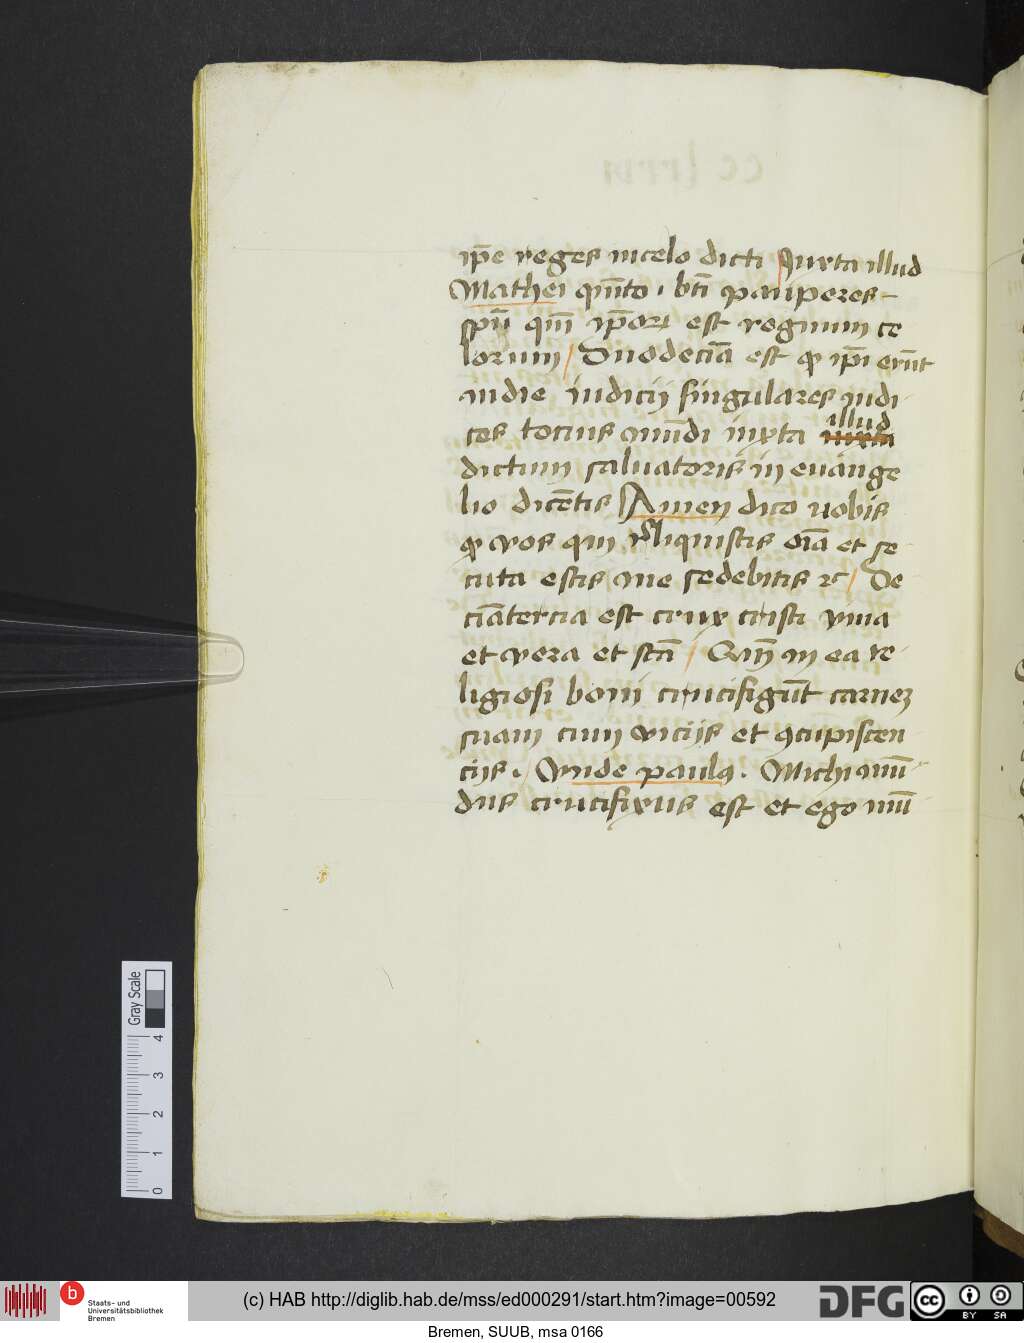 ip̄e reges in celo dicti Juxta illud
Mathei qūito . bt̄i pauperes
spū qm̄ ip̄oꝝ est regnum ce
lorum / Duodecīa est ꝙ ip̄i erūt
in die iudicij singulares iudi
ces tocius mūdi iuxta illud
dictum saluatoris in euange
lio dicētis Amen dico vobis
ꝙ vos qui reliquistis oīa et se
cuti estis me sedebitis ⁊c / De
cīatercia est crux cristi viua
et vera et sctā / Qm̄ in ea re
ligiosi boni crucifigūt carnem
suam cum vicijs et ꝯcupiscen
cijs . Vnde paulꝰ . Michi mū
dus crucifixus est et ego mū
Gray Scale
4
3
2
1
0
b
Staats- und
Universitätsbibliothek
Bremen
(c) HAB http://diglib.hab.de/mss/ed000291/start.htm?image=00592
DFG
cc
BY SA
Bremen, SUUB, msa 0166